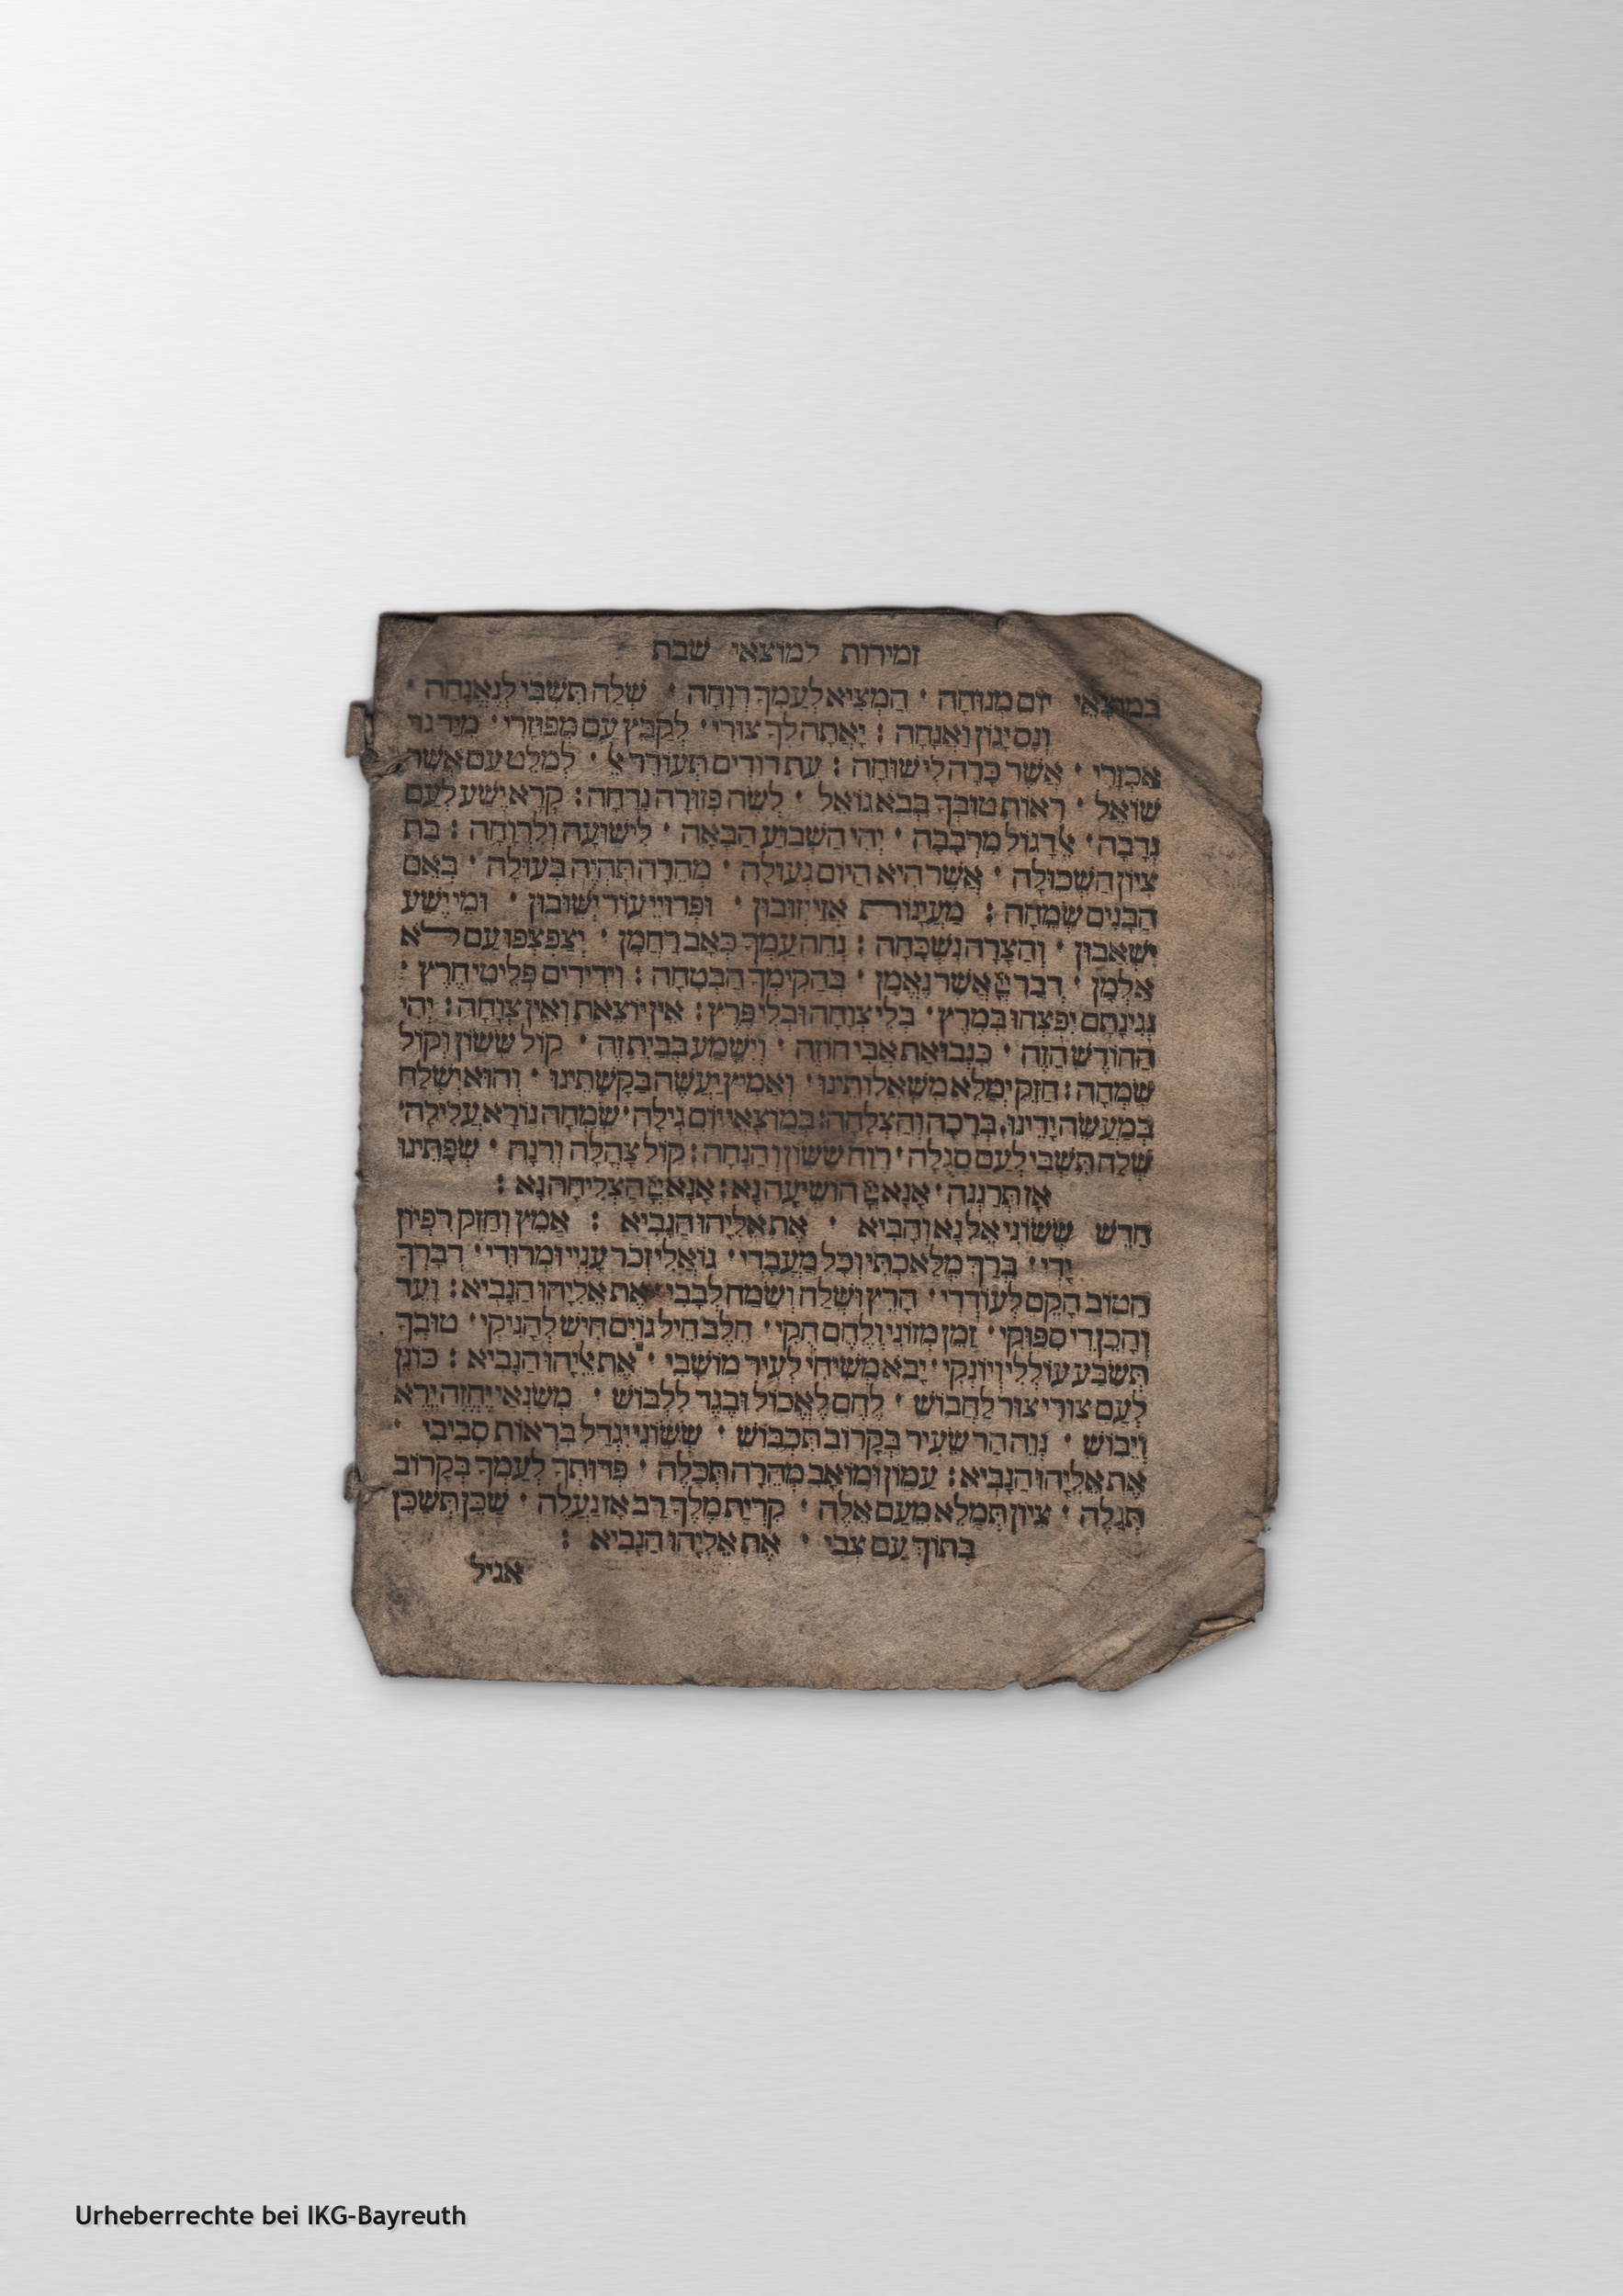 זמירות למוצאי שבת
במוצאי יוֹם מְנוּחָה · הַמְצִיא לְעַמְךָ רְוָחָה · שְׁלַח תִּשְׁבִּי לְנֶאֱנָחָה ·
וְנָס יָגוֹן וַאֲנָחָה : יָאֲתָה לְךָ צוּרִי · לְקַבֵּץ עַם מְפוּזָרִי · מִיַּד גּוֹי
אַכְזָרִי · אֲשֶׁר כָּרָה לִי שׁוּחָה : עֵת דּוֹדִים תְּעוֹרֵר אֵל · לְמַלֵּט עַם אֲשֶׁר
שׁוֹאֵל · רְאוֹת טוּבְךָ בְּבֹא גוֹאֵל · לְשֶׂה פְּזוּרָה נִדָּחָה : קְרָא יֶשַׁע לְעַם
נְדָבָה · אֵל דָּגוּל מֵרְבָבָה · יְהִי הַשָּׁבוּעַ הַבָּאָה · לִישׁוּעָה וְלִרְוָחָה : בַּת
צִיּוֹן הַשְּׁכוּלָה · אֲשֶׁר הִיא הַיּוֹם גְּעוּלָה · מְהֵרָה תִּהְיֶה בְּעוּלָה · בְּאֵם
הַבָּנִים שְׂמֵחָה : מַעְיָנוֹת אֲזַי יְזוּבוּן · וּפְדוּיֵי עוֹד יְשׁוּבוּן · וּמֵי יֶשַׁע
יִשְׁאֲבוּן · וְהַצָּרָה נִשְׁכָּחָה : נְחֵה עַמְּךָ כְּאָב רַחֲמָן · יְצַפְצְפוּ עַם לֹא
אַלְמָן · דְּבַר יְיָ אֲשֶׁר נֶאֱמָן · בַּהֲקִימְךָ הַבְטָחָה : וִידִידִים פְּלִיטֵי חֶרֶץ ·
נְגִינָתָם יִפְצְחוּ בְּמֶרֶץ · בְּלִי צְוָחָה וּבְלִי פֶּרֶץ : אֵין יוֹצֵאת וְאֵין צְוָחָה : יְהִי
הַחוֹדֶשׁ הַזֶּה · כִּנְבוּאַת אֲבִי חוֹזֶה · וְיִשָּׁמַע בְּבַיִת זֶה · קוֹל שָׂשׂוֹן וְקוֹל
שִׂמְחָה : חָזָק יְמַלֵּא מִשְׁאֲלוֹתֵינוּ · וְאַמִּיץ יַעֲשֶׂה בַּקָּשָׁתֵינוּ · וְהוּא יִשְׁלַח
בְּמַעֲשֵׂה יָדֵינוּ · בְּרָכָה וְהַצְלָחָה : בְּמוֹצָאֵי יוֹם גִּילָה · שִׂמְחָה נוֹרָא עֲלִילָה ·
שְׁלַח תִּשְׁבִּי לְעַם סְגֻלָּה · רֶוַח שָׂשׂוֹן וַהֲנָחָה : קוֹל צָהֳלָה וְרִנָּה · שְׂפָתֵינוּ
אָז תְּרַנֵּנָה · אָנָּא יְיָ הוֹשִׁיעָה נָּא : אָנָּא יְיָ הַצְלִיחָה נָּא :
חַדֵּשׁ שְׂשׂוֹנִי אֵל נָא וְהָבִיא · אֶת אֵלִיָּהוּ הַנָּבִיא : אַמֵּץ וְחַזֵּק רִפְיוֹן
יָדִי · בָּרֵךְ מְלַאכְתִּי וְכָל מַעֲבָדִי · גּוֹאֲלִי זְכֹר עָנְיִי וּמְרוּדִי · דְּבָרְךָ
הַטּוֹב הָקֵם לְעוֹדְדִי · הָרֵץ וּשְׁלַח וְשַׂמַּח לְבָבִי · אֶת אֵלִיָּהוּ הַנָּבִיא : וַעַד
וְהָכֵן דֵּי סִפּוּקִי · זַמֵּן מְזוֹנִי וְלֶחֶם חֻקִּי · חֵלֶב חֵיל גּוֹיִם חִישׁ לְהָנִיקִי · טוּבְךָ
תַּשְׂבַּע עוֹלְלַי וְיוֹנְקִי · יָבֹא מְשִׁיחִי לְעִיר מוֹשָׁבִי · אֶת אֵלִיָּהוּ הַנָּבִיא : כּוֹנֵן
לְעַם צוּרִי צוּר לַחֲבוֹשׁ · לֶחֶם לֶאֱכוֹל וּבֶגֶד לִלְבּוֹשׁ · מְשַׂנְאַי יֶחֱזֶה יֵרֵא
וְיֵבוֹשׁ · נְוֵה הַר שֵׂעִיר בְּקָרוֹב תִּכְבּוֹשׁ · שְׂשׂוֹנִי יִגְדַּל בִּרְאוֹת סְבִיבִי ·
אֶת אֵלִיָּהוּ הַנָּבִיא : עַמּוֹן וּמוֹאָב מְהֵרָה תְּכַלֶּה · פְּדוּתְךָ לְעַמְּךָ בְּקָרוֹב
תְּגַלֶּה · צִיּוֹן תְּמַלֵּא מֵעַם אֵלֶּה · קִרְיַת מֶלֶךְ רָב אָז נַעֲלֶה · שַׁכֵּן תְּשַׁכֵּן
בְּתוֹךְ עַם צְבִי · אֶת אֵלִיָּהוּ הַנָּבִיא :
אגיל
Urheberrechte bei IKG-Bayreuth